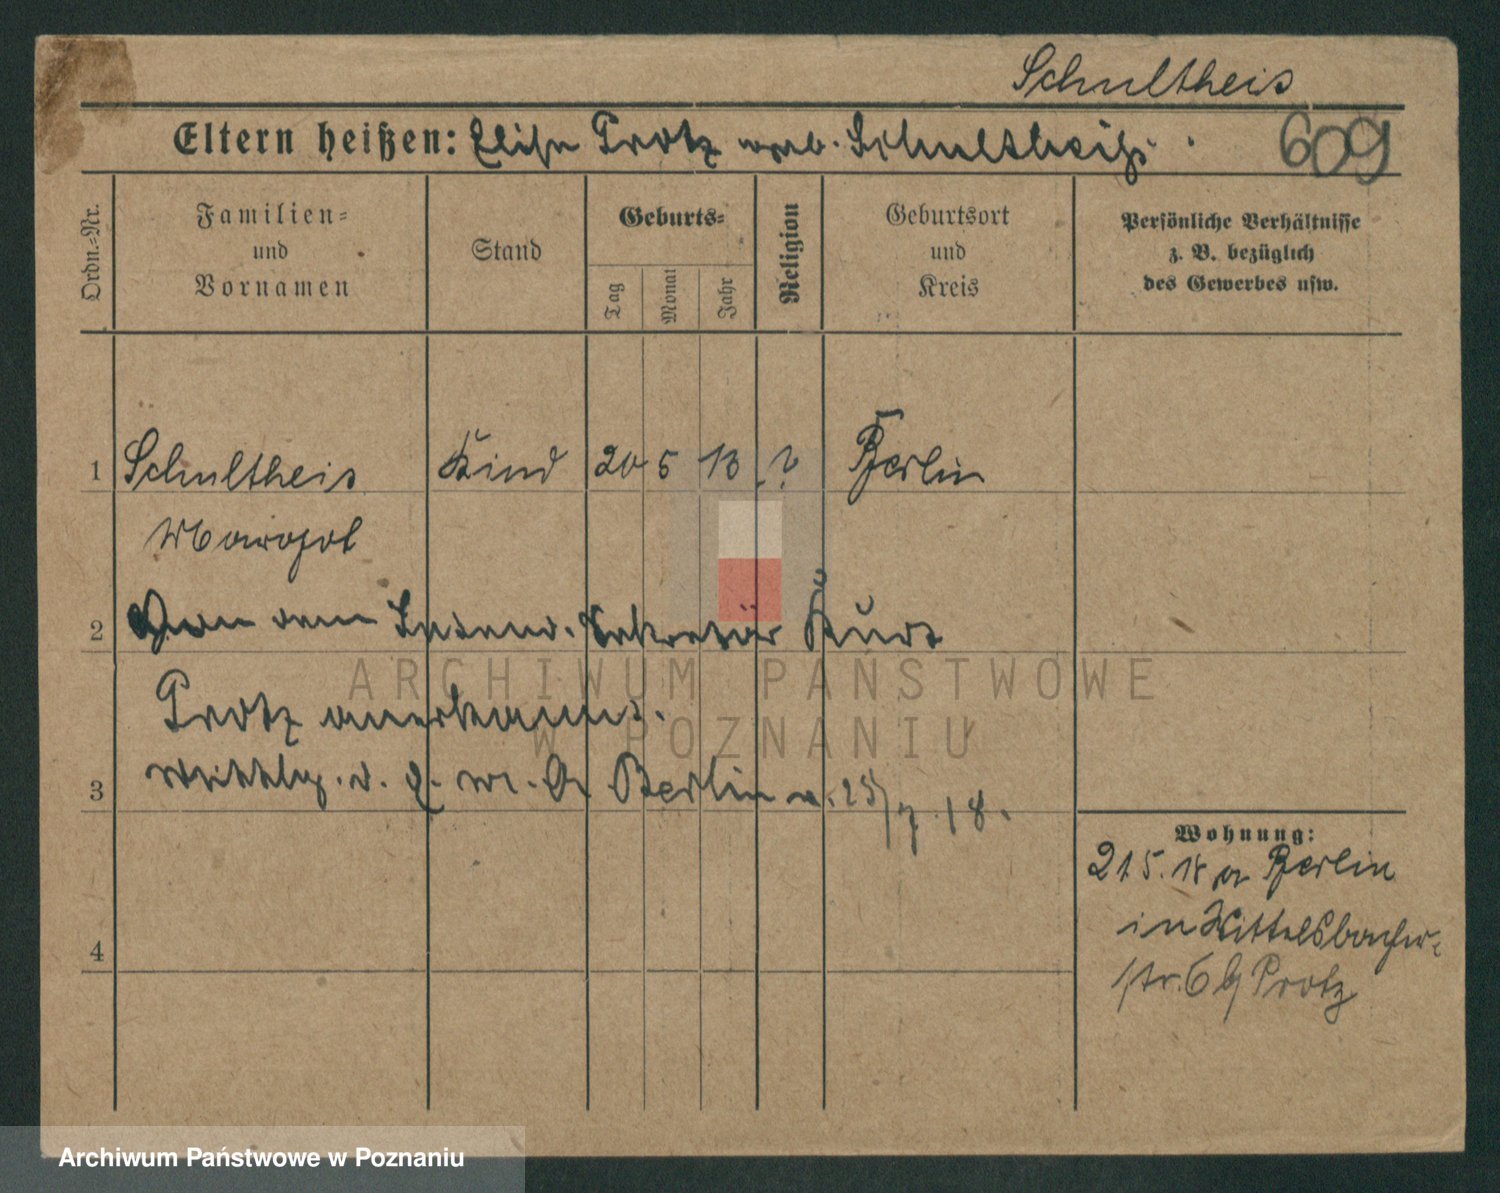 Schultheis
Eltern heißen: Elise Protz verb. Schultheiß. 609
Ordn.=Nr.
Familien=
und
Vornamen
Stand
Geburts=
Tag
Monat
Jahr
Religion
Geburtsort
und
Kreis
Persönliche Verhältnisse
z. B. bezüglich
des Gewerbes usw.
1 Schultheis Kind 20 5 13 ? Berlin
Von dem Intend. Sekretär Kurt
2
Protz anerkannt.
3 Berlin v. 25/7.18.
4
Wohnung:
21 5. 18 Berlin
in Wittelsbacher-
str. 6 b/ Protz
ARCHIWUM PAŃSTWOWE
W POZNANIU
Archiwum Państwowe w Poznaniu